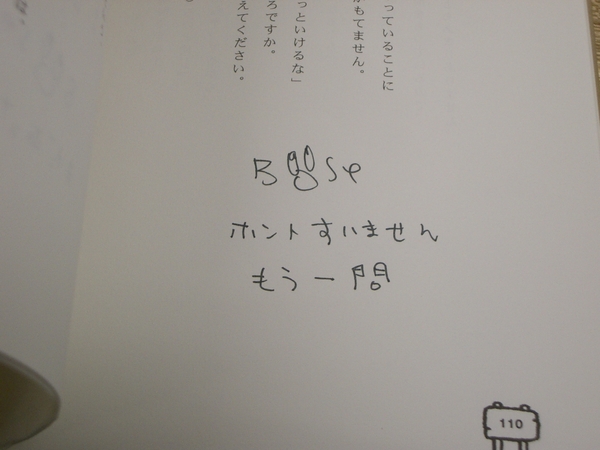 っていることに
がもてません。
っといけるな」
ろですか。
えてください。
Bose
ホントすいません
もう一問
110